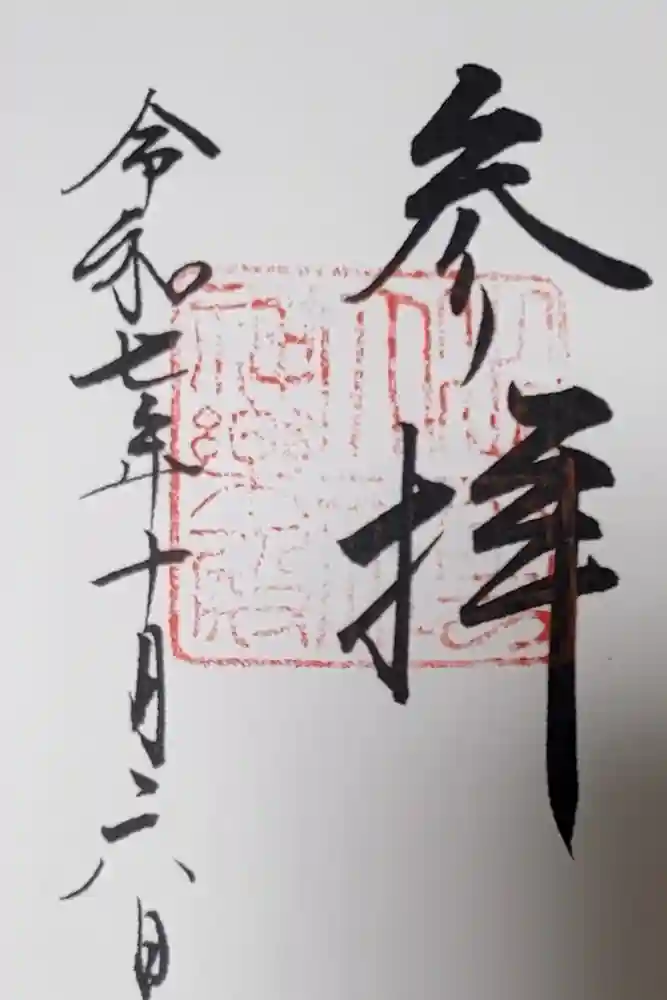 参拝
令和七年十月六日